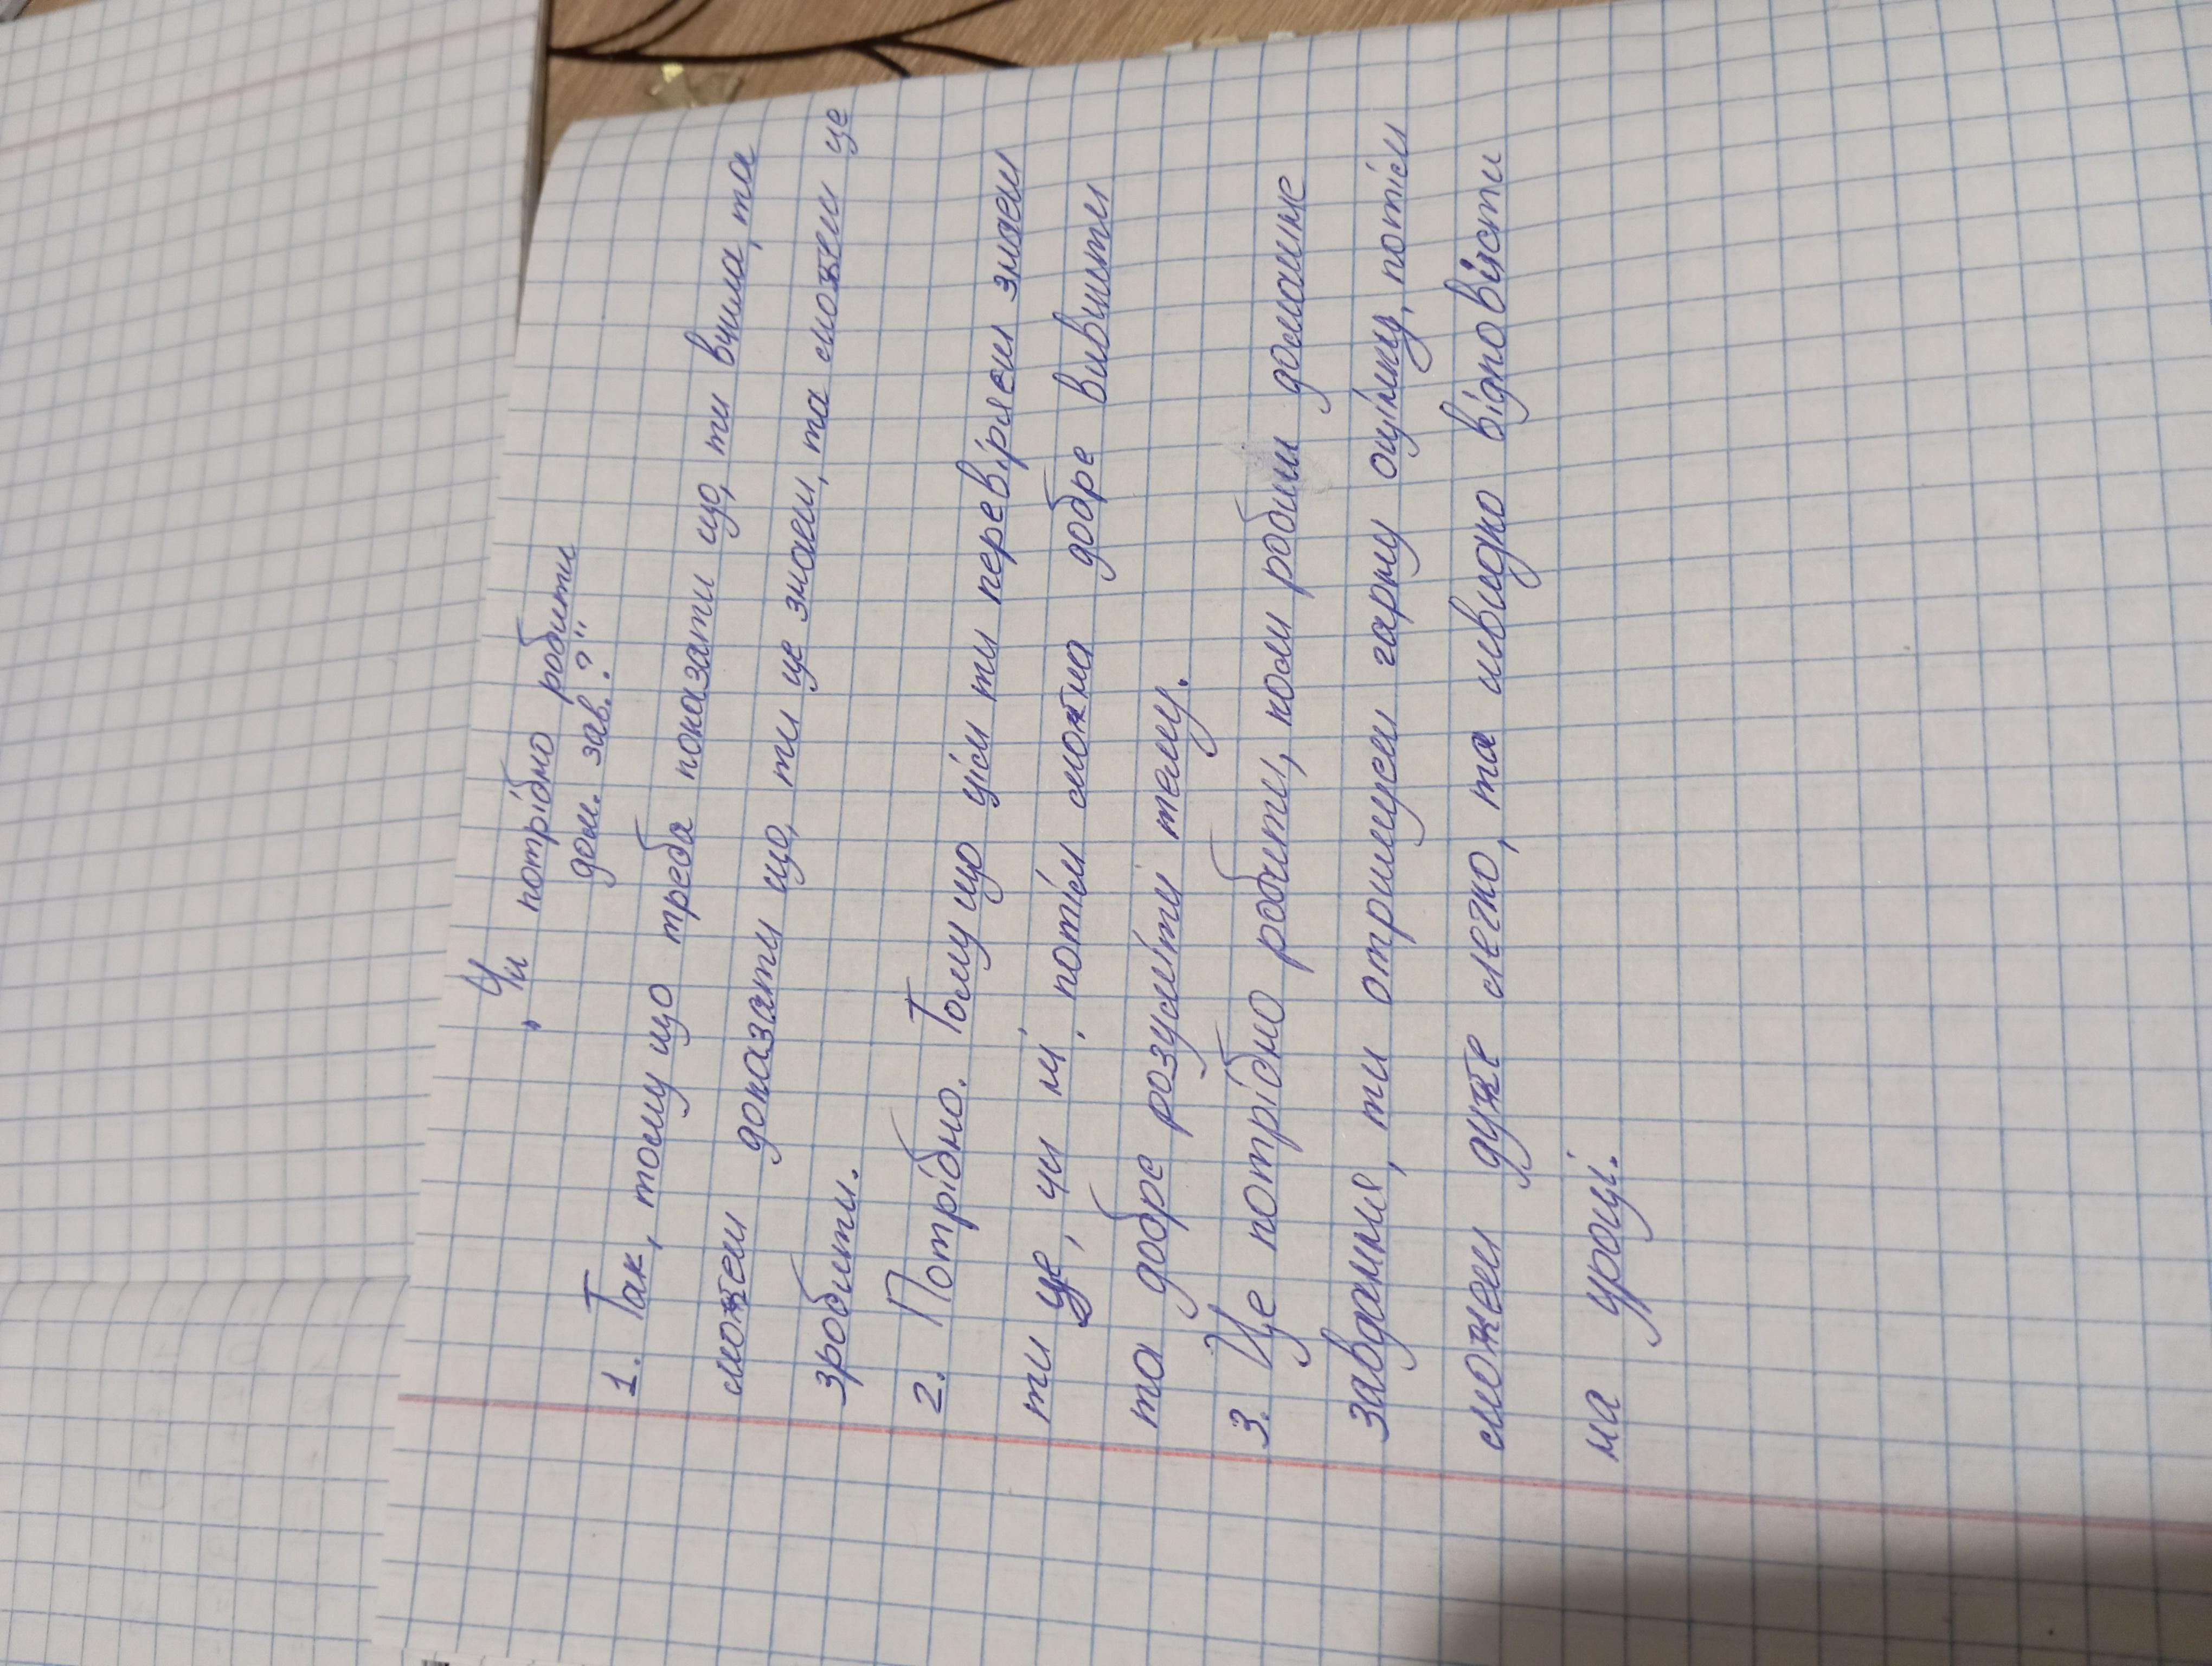 „Чи потрібно робити
дом. зав.?"
1. Так, тому що треба показати що, ти вчила, та
можеш доказати що, ти це знаєш, та можеш це
зробити.
2. Потрібно. Тому що цім ти перевіряєш знаєш
ти це, чи ні, потім можна добре вивчити
та добре розуміти тему.
3. Це потрібно робити, коли робиш домашнє
завдання, ти отримуєш гарну оцінку, потім
можеш дуже легко, та швидко відповісти
на уроці.